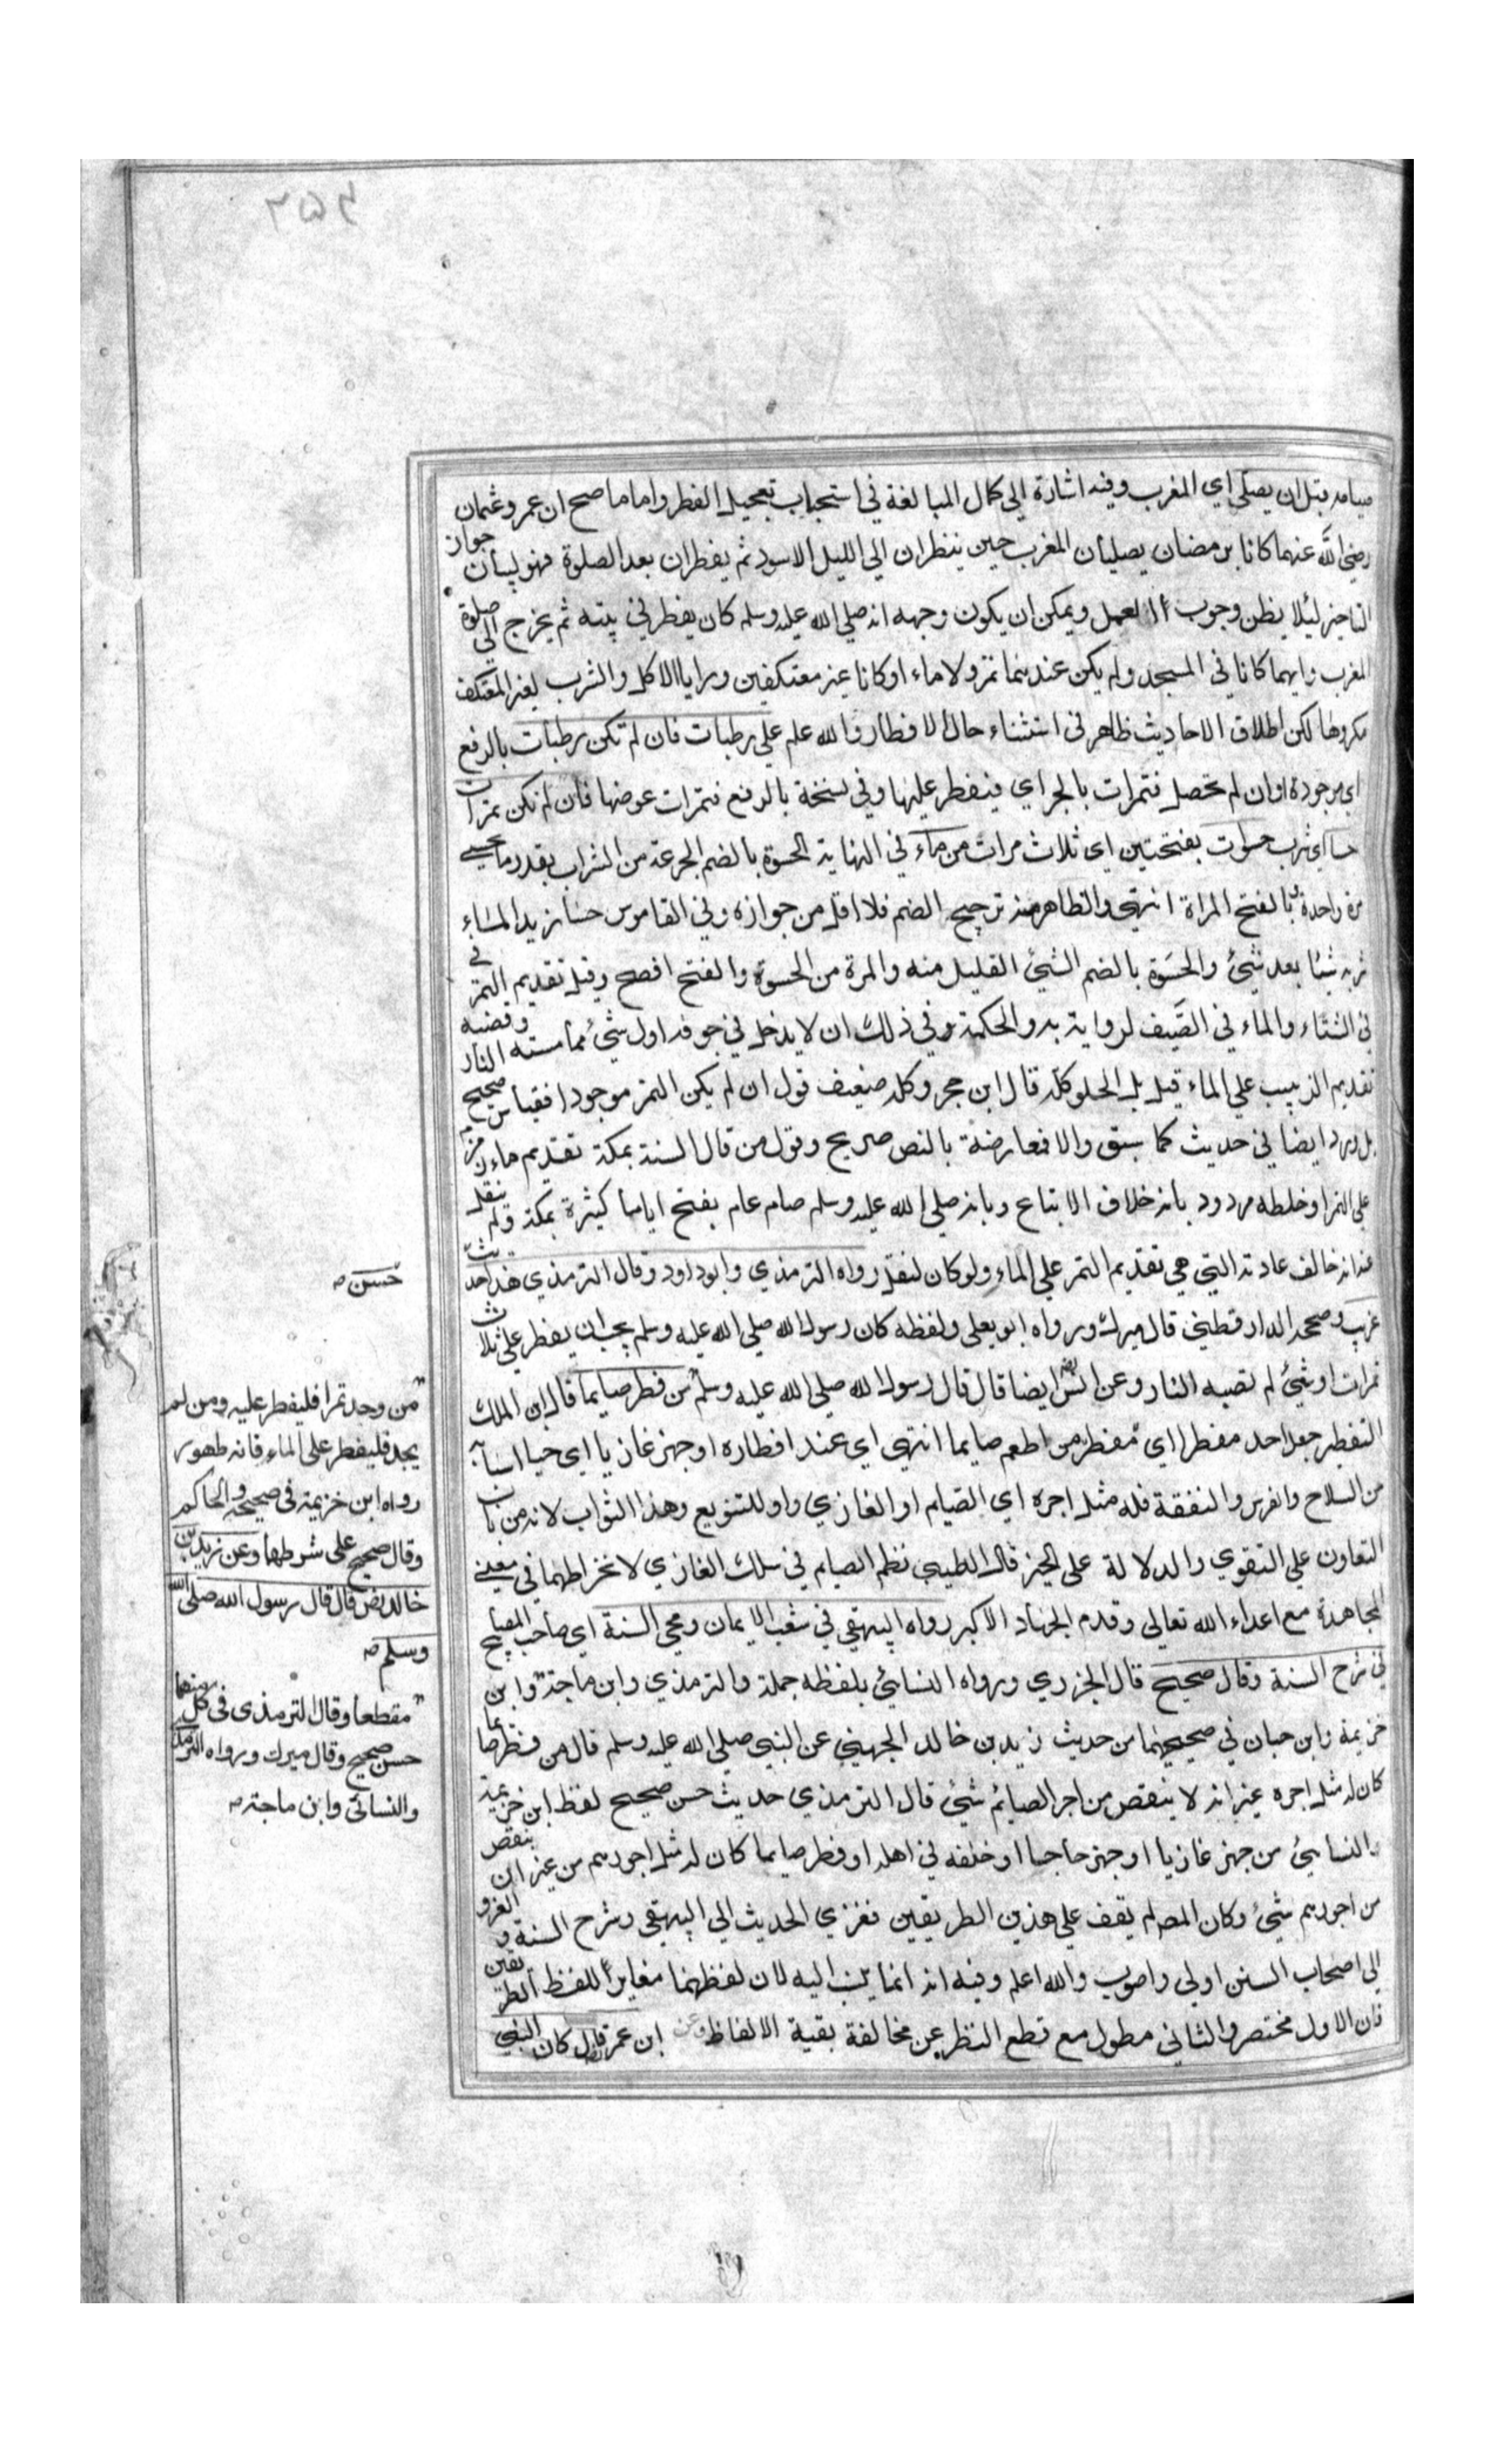 صيامه قبل ان يصلي اي المغرب وفيه اشارة الي كمال المبالغة في استحباب تعجيل الفطر واما ما صح ان عمر وعثمان
رضي الله عنهما كانا برمضان يصليان المغرب حين ينظران الي الليل الاسود ثم يفطران بعد الصلوة فهو لبيان جواز
التاخير لئلا يظن وجوب العمل ويمكن ان يكون وجهه انه صلي الله عليه وسلم كان يفطر في بيته ثم يخرج الي صلوة
المغرب وانهما كانا في المسجد ولم يكن عندهما تمر ولا ماء او كانا غير معتكفين ورايا الاكل والشرب لغير المعتكف
مكروها لكن اطلاق الاحاديث ظاهر في استثناء حال الافطار والله علم علي رطبات فان لم تكن رطبات بالرفع
اي موجودة او ان لم تحصل فتمرات بالجر اي فيفطر عليها وفي نسخة بالرفع فتمرات عوضها فان لم تكن تمرات
حسا اي شرب حسوات بفتحتين اي ثلاث مرات من ماء في النهاية الحسوة بالضم الجرعة من الشراب بقدر ما يحسي
مرة واحدة وبالفتح المراة انتهي والظاهر منه ترجيح الضم فلا اقل من جوازه وفي القاموس حسا زيد الماء
شربه شيئا بعد شيئ والحسوة بالضم الشيئ القليل منه والمرة من الحسوة والفتح افصح وقيل تقديم التمر في
في الشتاء والماء في الصيف لرواية به والحكمة في ذلك ان لا يدخل في جوفه اول شيئ مما مسته النار وقضية
تقديم الزبيب علي الماء قيل بل الحلو كله قال ابن حجر وكله ضعيف قول ان لم يكن التمر موجودا فقياس صحيح
بل ورد ايضا في حديث كما سبق والا فمعارضة بالنص صريح وقول من قال السنة بمكة تقديم ماء زمزم
علي التمر او خلطه مردود بانه خلاف الاتباع وبانه صلي الله عليه وسلم صام عام بفتح اياما كثيرة بمكة ولم ينقل
عنه انه خالف عادته التي هي تقديم التمر علي الماء ولو كان لنقل رواه الترمذي وابوداود وقال الترمذي هذا حديث
حسن صح
غريب وصححه الدارقطني قال ميرك ورواه ابو يعلي ولفظه كان رسول الله صلي الله عليه وسلم يحب ان يفطر علي ثلاث
تمرات او شيئ لم تصبه النار وعن انس ايضا قال قال رسول الله صلي الله عليه وسلم من فطر صايما قال ابن الملك
من وجد تمرا فليفطر عليه ومن لم
يجد فليفطر على الماء فانه طهور
رواه ابن خزيمة في صحيحه والحاكم
وقال صحيح على شرطهما وعن زيد بن
خالد رض قال قال رسول الله صلى الله
وسلم صح
التفطير جعل احد مفطرا اي مفطر من اطعم صايما انتهي اي عند افطاره او جهز غازيا اي هيا اسبابه
من السلاح والفرس والنفقة فله مثل اجره اي الصيام او الغازي واو للتنويع وهذا الثواب لانه من باب
التعاون علي التقوي والدلالة على الخير قال الطيبي نظم الصايم في سلك الغازي لانخراطهما في معني
المجاهدة مع اعداء الله تعالى وقدم الجهاد الاكبر رواه البيهقي في شعب الايمان ومحي السنة اي صاحب المصابيح
في شرح السنة وقال صحيح قال الجزري ورواه النسائي بلفظه جملة والترمذي وابن ماجة وابن
مقطعا وقال الترمذى فى كل منهما
حسن صحيح وقال ميرك ورواه الترمذى
والنسائى وابن ماجة صح
خزيمة وابن حبان في صحيحهما من حديث زيد بن خالد الجهني عن النبي صلي الله عليه وسلم قال من فطر صايما
كان له مثل اجره غير انه لا ينقص من اجر الصيائم شيئ قال الترمذي حديث حسن صحيح لفظ ابن خزيمة
والنسائي من جهز غازيا او جهز حاجا او خلفه في اهله او فطر صايما كان له مثل اجورهم من غير ان ينقص
من اجورهم شيئ وكان المصه لم يقف علي هذين الطريقين فعزي الحديث الي البيهقي وشرح السنة والعزو
الي اصحاب السنن اولي واصوب والله اعلم وفيه انه انما ينسب اليه لان لفظهما مغايرا للفظ الطريقين
فان الاول مختصر والثاني مطول مع قطع النظر عن مخالفة بقية الالفاظ وعن ابن عمر قال كان النبي